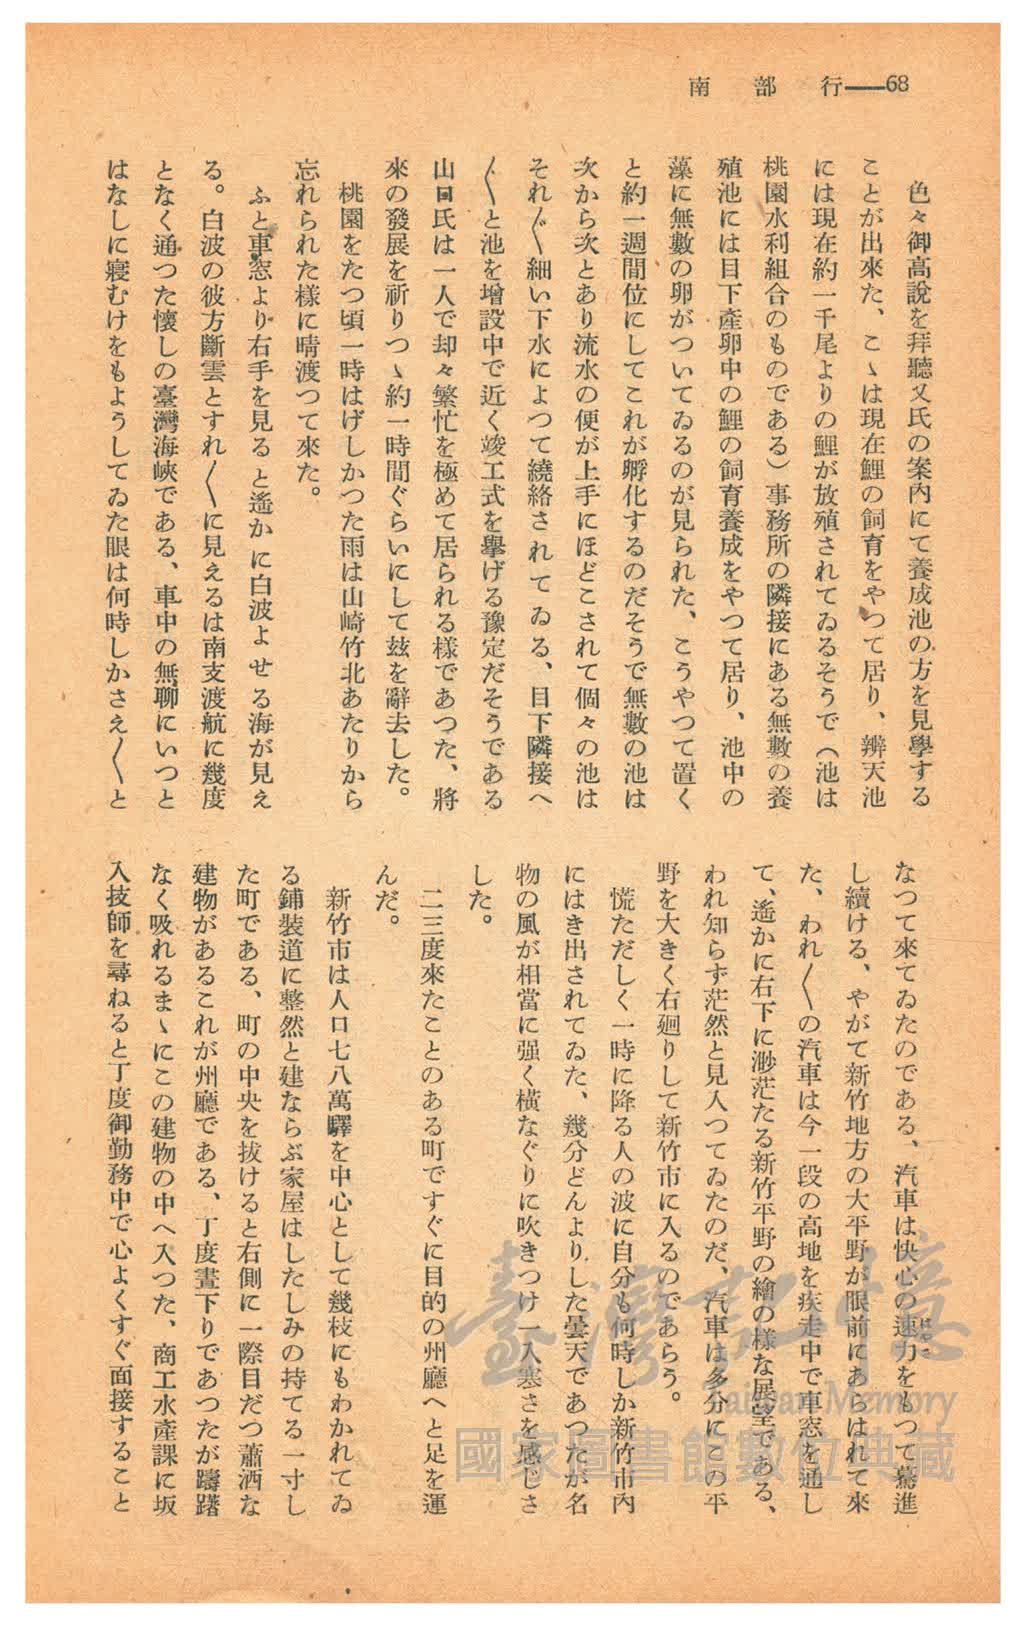 南部行――68
色々御高說を拜聽又氏の案內にて養成池の方を見學する
ことが出來た、こゝは現在鯉の飼育をやつて居り、辨天池
には現在約一千尾よりの鯉が放殖されてゐるそうで（池は
桃園水利組合のものである）事務所の隣接にある無數の養
殖池には目下產卵中の鯉の飼育養成をやつて居り、池中の
藻に無數の卵がついてゐるのが見られた、こうやつて置く
と約一週間位にしてこれが孵化するのだそうで無數の池は
次から次とあり流水の便が上手にほどこされて個々の池は
それ〴〵細い下水によつて繞絡されてゐる、目下隣接へ
〳〵と池を增設中で近く竣工式を擧げる豫定だそうである
山口氏は一人で却々繁忙を極めて居られる樣であつた、將
來の發展を祈りつゝ約一時間ぐらいにして玆を辭去した。
桃園をたつ頃一時はげしかつた雨は山崎竹北あたりから
忘れられた樣に晴渡つて來た。
ふと車窓より右手を見ると遙かに白波よせる海が見え
る。白波の彼方斷雲とすれ〳〵に見えるは南支渡航に幾度
となく通つた懷しの臺灣海峽である、車中の無聊にいつと
はなしに寢むけをもようしてゐた眼は何時しかさえ〳〵と
なつて來てゐたのである、汽車は快心の速力をもつて驀進
はや
し續ける、やがて新竹地方の大平野が眼前にあらはれて來
た、われ〳〵の汽車は今一段の高地を疾走中で車窓を通し
て、遙かに右下に渺茫たる新竹平野の繪の樣な展望である、
われ知らず茫然と見入つてゐたのだ、汽車は多分にこの平
野を大きく右廻りして新竹市に入るのであらう。
慌ただしく一時に降る人の波に自分も何時しか新竹市內
にはき出されてゐた、幾分どんよりした曇天であつたが名
物の風が相當に强く橫なぐりに吹きつけ一入寒さを感じさ
した。
二三度來たことのある町ですぐに目的の州廳へと足を運
んだ。
新竹市は人口七八萬驛を中心として幾枝にもわかれてゐ
る鋪裝道に整然と建ならぶ家屋はしたしみの持てる一寸し
た町である、町の中央を拔けると右側に一際目だつ瀟洒な
建物があるこれが州廳である、丁度晝下りであつたが躊躇
なく吸れるまゝにこの建物の中へ入つた、商工水產課に坂
入技師を尋ねると丁度御勤務中で心よくすぐ面接すること
臺灣記憶
Taiwan Memory
國家圖書館數位典藏